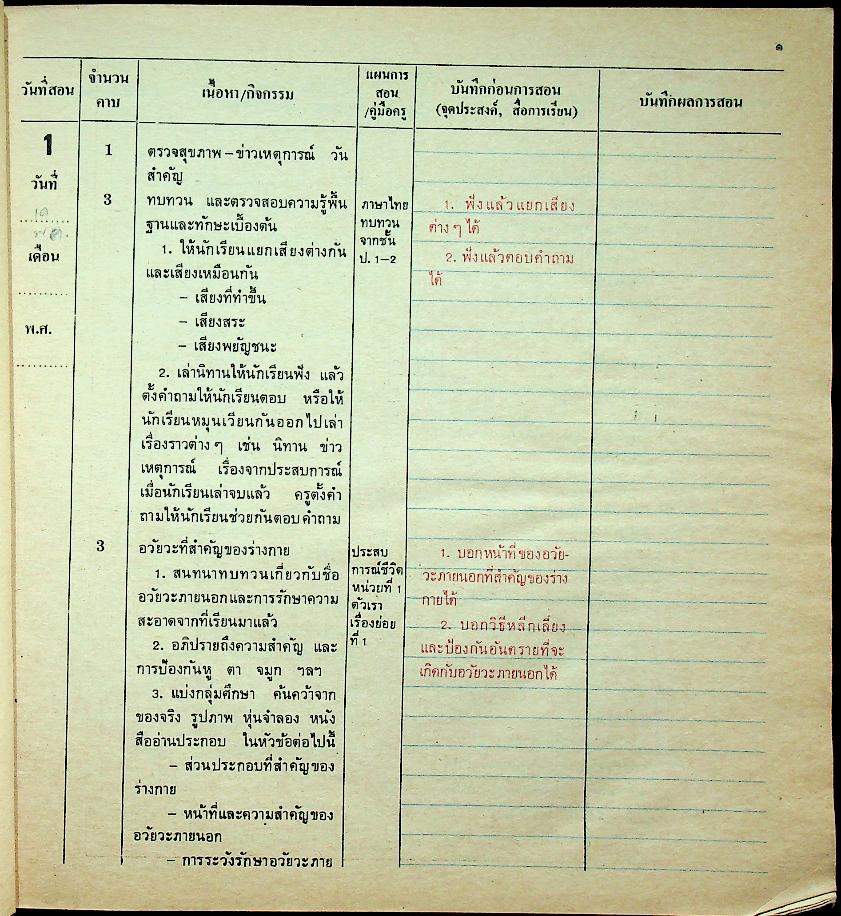 ๑
วันที่สอน
จำนวน
คาบ
เนื้อหา/กิจกรรม
แผนการ
สอน
/คู่มือครู
บันทึกก่อนการสอน
(จุดประสงค์, สื่อการเรียน)
บันทึกผลการสอน
1
วันที่
เดือน
พ.ศ.
1
ตรวจสุขภาพ–ข่าวเหตุการณ์ วัน
สำคัญ
3
ทบทวน และตรวจสอบความรู้พื้น
ฐานและทักษะเบื้องต้น
1. ให้นักเรียนแยกเสียงต่างกัน
และเสียงเหมือนกัน
– เสียงที่ทำขึ้น
– เสียงสระ
– เสียงพยัญชนะ
2. เล่านิทานให้นักเรียนฟัง แล้ว
ตั้งคำถามให้นักเรียนตอบ หรือให้
นักเรียนหมุนเวียนกันออกไปเล่า
เรื่องราวต่างๆ เช่น นิทาน ข่าว
เหตุการณ์ เรื่องจากประสบการณ์
เมื่อนักเรียนเล่าจบแล้ว ครูตั้งคำ
ถามให้นักเรียนช่วยกันตอบคำถาม
ภาษาไทย
ทบทวน
จากชั้น
ป. 1–2
1. ฟังแล้วแยกเสียง
ต่างๆ ได้
2. ฟังแล้วตอบคำถาม
ได้
3
อวัยวะที่สำคัญของร่างกาย
1. สนทนาทบทวนเกี่ยวกับชื่อ
อวัยวะภายนอกและการรักษาความ
สะอาดจากที่เรียนมาแล้ว
2. อภิปรายถึงความสำคัญ และ
การป้องกันหู ตา จมูก ฯลฯ
3. แบ่งกลุ่มศึกษา ค้นคว้าจาก
ของจริง รูปภาพ หุ่นจำลอง หนัง
สืออ่านประกอบ ในหัวข้อต่อไปนี้
– ส่วนประกอบที่สำคัญของ
ร่างกาย
– หน้าที่และความสำคัญของ
อวัยวะภายนอก
– การระวังรักษาอวัยวะภาย
ประสบ
การณ์ชีวิต
หน่วยที่ 1
ตัวเรา
เรื่องย่อย
ที่ 1
1. บอกหน้าที่ของอวัย-
วะภายนอกที่สำคัญของร่าง
กายได้
2. บอกวิธีหลีกเลี่ยง
และป้องกันอันตรายที่จะ
เกิดกับอวัยวะภายนอกได้